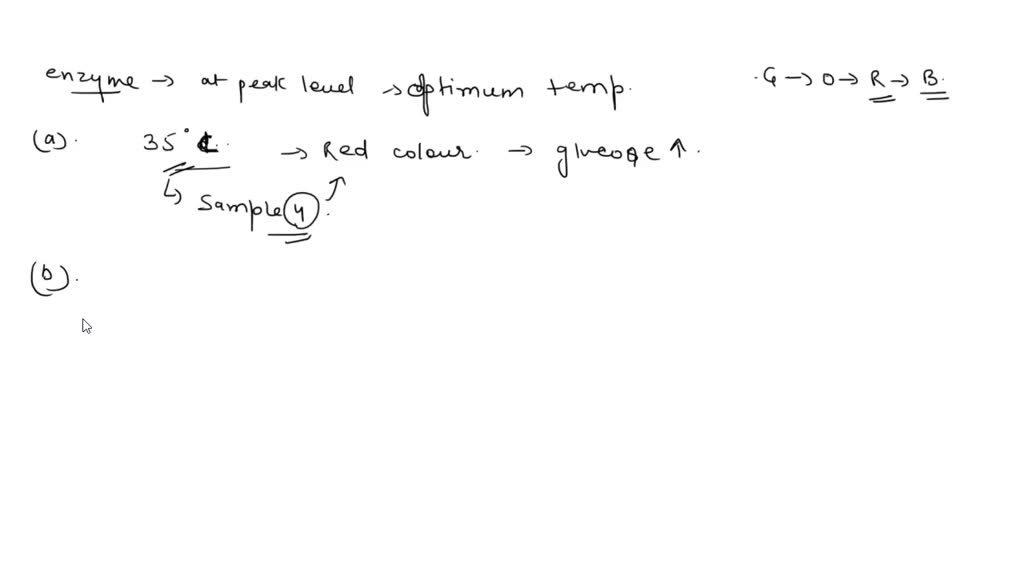 enzyme → at peak level → optimum temp.
.G → O → R → B.
(a). 35°C. → Red colour. → glucose ↑.
↳ Sample 4.
(b).